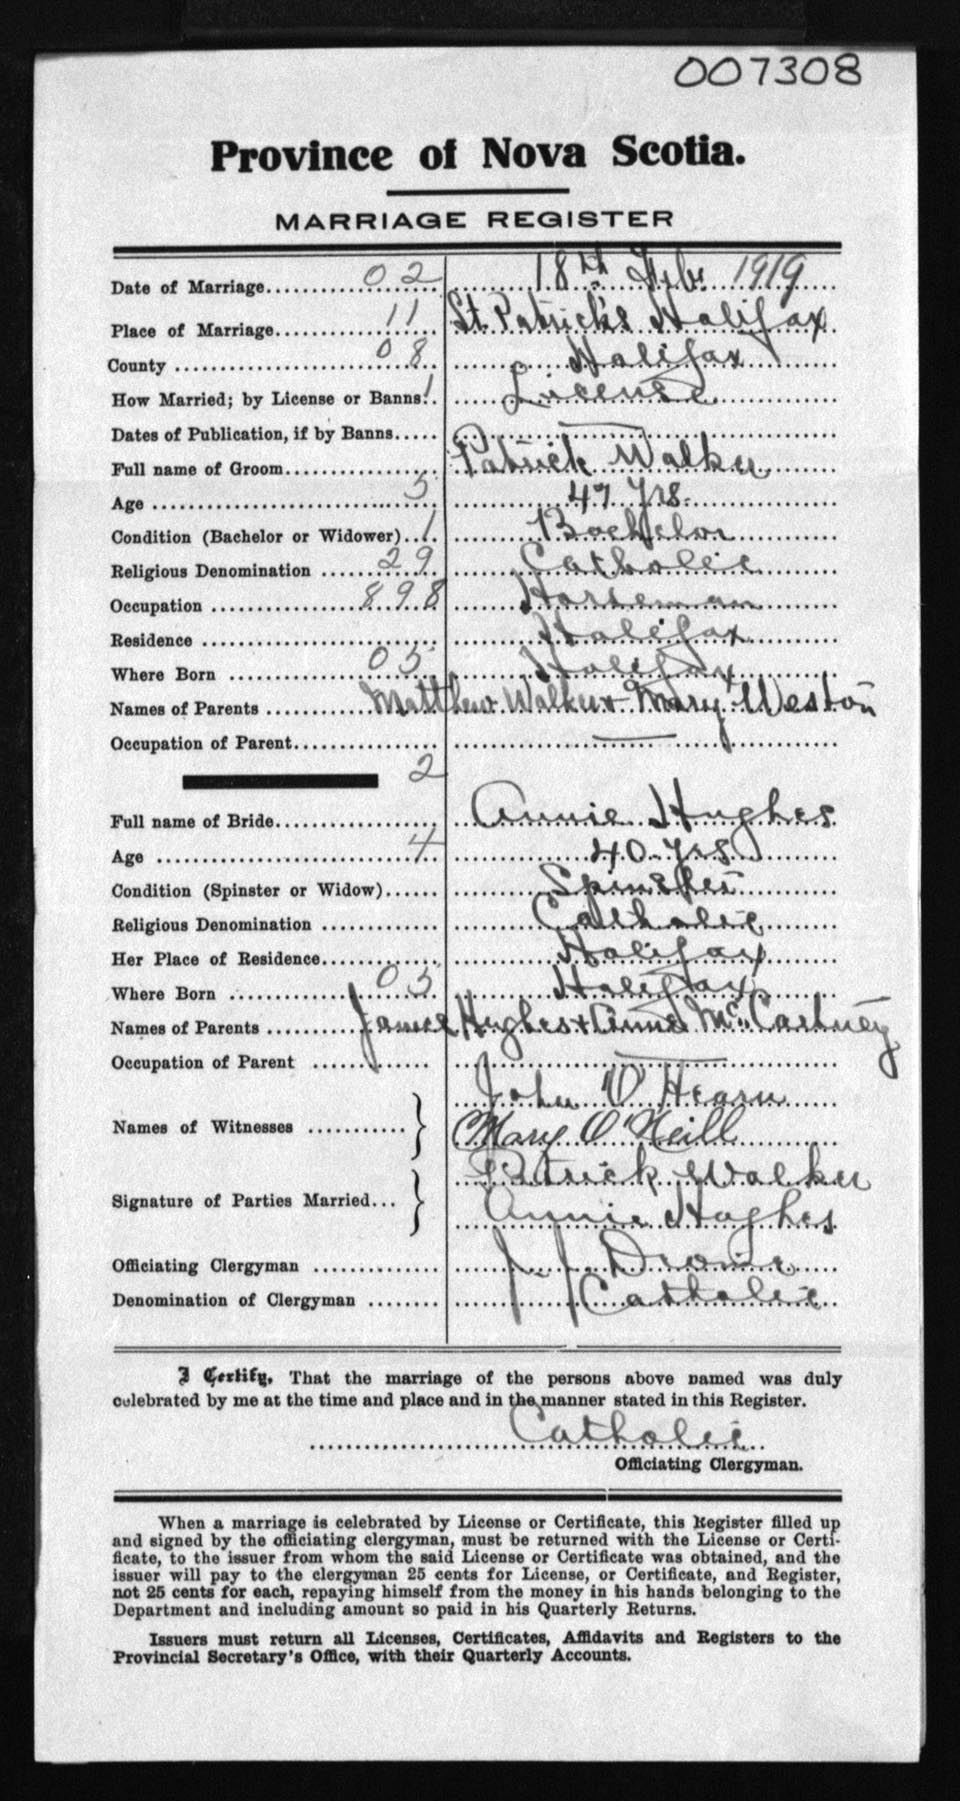 007308
Province of Nova Scotia.
MARRIAGE REGISTER
Date of Marriage 02 18th Feb. 1919
Place of Marriage 11 St. Patrick's Halifax
County 08 Halifax
How Married; by License or Banns 1 License
Dates of Publication, if by Banns
Full name of Groom Patrick Walker
Age 5 47 yrs.
Condition (Bachelor or Widower) 1 Bachelor
Religious Denomination 29 Catholic
Occupation 898 Horseman
Residence Halifax
Where Born 05 Halifax
Names of Parents Matthew Walker + Mary Weston
Occupation of Parent
2
Full name of Bride Annie Hughes
Age 4 40 yrs
Condition (Spinster or Widow) Spinster
Religious Denomination Catholic
Her Place of Residence Halifax
Where Born 05 Halifax
Names of Parents James Hughes + Anne McCartney
Occupation of Parent
John O'Hearn
Names of Witnesses
Mary O'Neill
Patrick Walker
Signature of Parties Married
Annie Hughes
Officiating Clergyman J. J.
Denomination of Clergyman Catholic
I Certify, That the marriage of the persons above named was duly
celebrated by me at the time and place and in the manner stated in this Register.
Catholic
Officiating Clergyman.
When a marriage is celebrated by License or Certificate, this Register filled up
and signed by the officiating clergyman, must be returned with the License or Certi-
ficate, to the issuer from whom the said License or Certificate was obtained, and the
issuer will pay to the clergyman 25 cents for License, or Certificate, and Register,
not 25 cents for each, repaying himself from the money in his hands belonging to the
Department and including amount so paid in his Quarterly Returns.
Issuers must return all Licenses, Certificates, Affidavits and Registers to the
Provincial Secretary's Office, with their Quarterly Accounts.